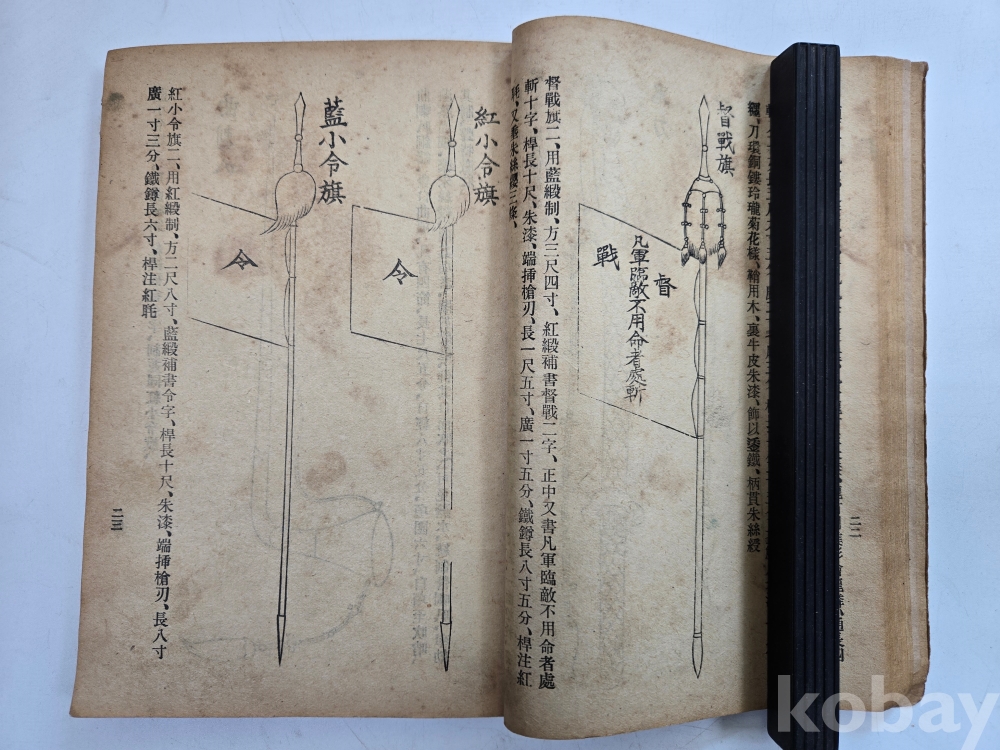 繩、刀環銅鏤玲瓏菊花樣、鞘用木、裏牛皮朱漆、飾以鋈鐵、柄貫朱絲綬
督戰旗
督戰
凡軍臨敵不用命者處斬
督戰旗二、用藍緞制、方三尺四寸、紅緞補書督戰二字、正中又書凡軍臨敵不用命者處
斬十字、桿長十尺、朱漆、端揷槍刃、長一尺五寸、廣一寸五分、鐵鐏長八寸五分、桿注紅
毦、又垂朱絲纓三條、
二二
紅小令旗
令
藍小令旗
令
紅小令旗二、用紅緞制、方二尺八寸、藍緞補書令字、桿長十尺、朱漆、端揷槍刃、長八寸
廣一寸三分、鐵鐏長六寸、桿注紅毦
二三
kobay